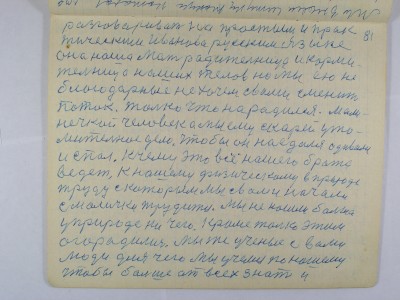 разговаривал на простым и прак
тическим Иванова русским языке 81
она наша мать радительница и корми-
телница наших телов но мы ею не
благодарные не хочем с вами сменить
поток. Только что народился. Мале-
нечкой человека а мы ему скарей уто-
лительное дело, чтобы он наедался одевался
и спал. К чему это всё нашего брата
ведет, к нашему физическому в природе
труду с которым мы с вами начали
с малички трудится. Мы не нашли больше
у природе ни чего. Кроме только этим
огородилися. Мы же ученые с вами
люди для чего мы учимся по нашему
чтобы больше от всех знать и